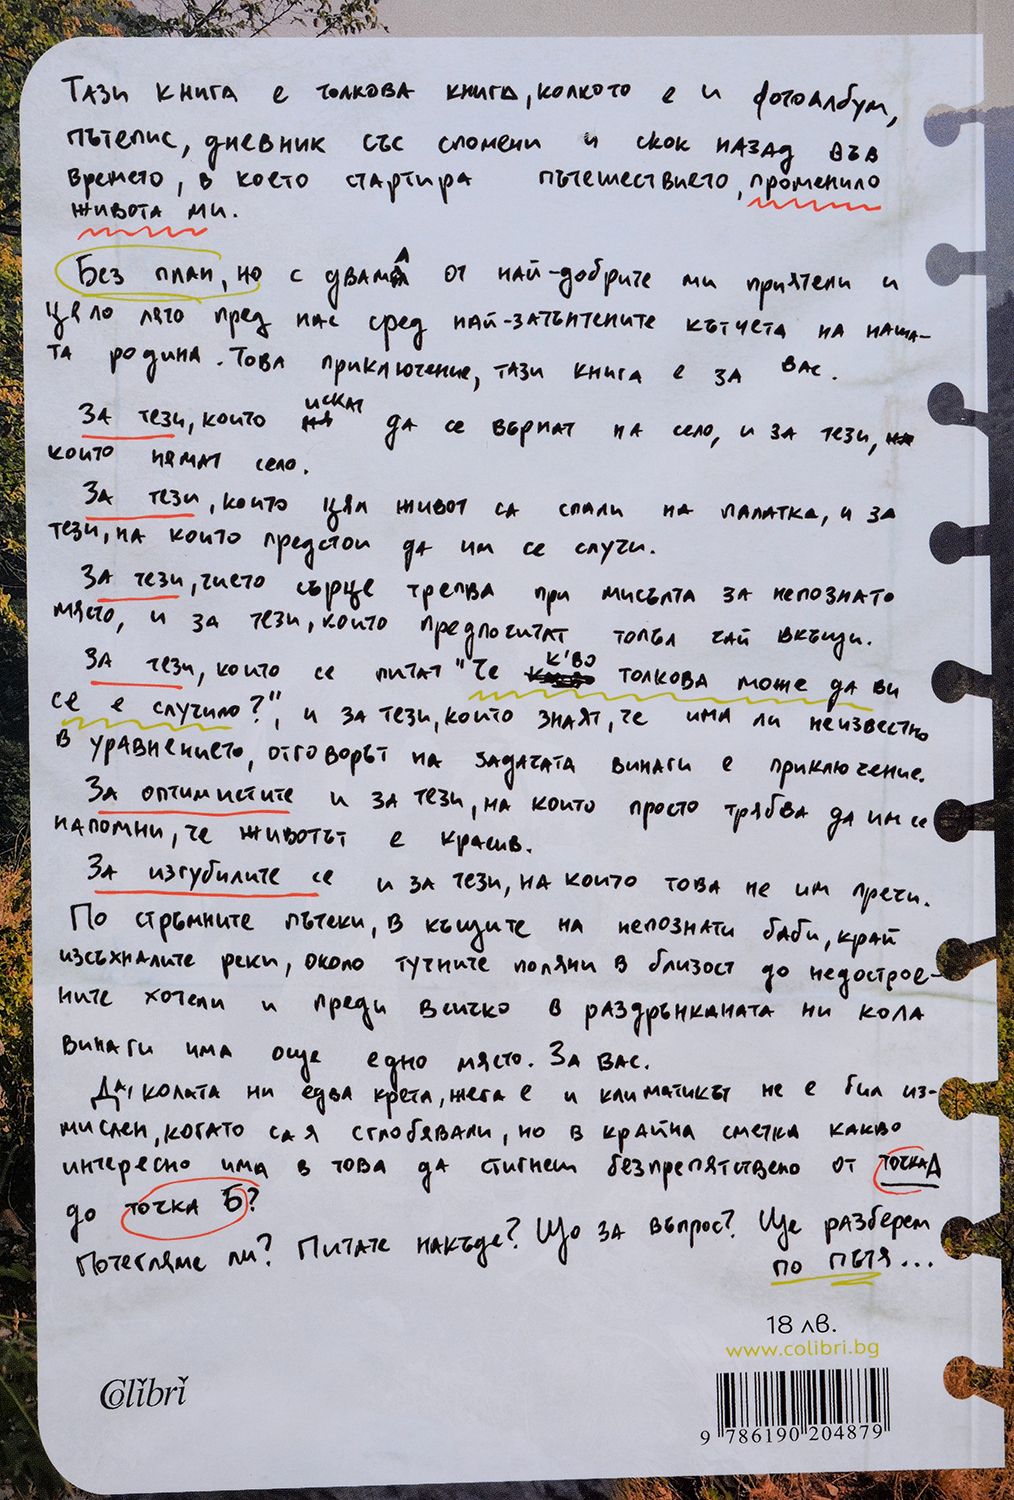 Тази книга е толкова книга, колкото е и фотоалбум,
пътепис, дневник със спомени и скок назад във
времето, в което стартира пътешествието, променило
живота ми.
Без план, но с двама от най-добрите ми приятели и
цяло лято пред нас сред най-затънтените кътчета на наша-
та родина. Това приключение, тази книга е за вас.
За тези, които искат да се върнат на село, и за тези,
които нямат село.
За тези, които цял живот са спали на палатка, и за
тези, на които предстои да им се случи.
За тези, чието сърце трепва при мисълта за непознато
място, и за тези, които предпочитат топъл чай вкъщи.
За тези, които се питат "Че к'во толкова може да ви
се е случило?", и за тези, които знаят, че има ли неизвестно
в уравнението, отговорът на задачата винаги е приключение.
За оптимистите и за тези, на които просто трябва да им се
напомни, че животът е красив.
За изгубилите се и за тези, на които това не им пречи.
По стръмните пътеки, в къщите на непознати баби, край
изсъхналите реки, около тучните поляни в близост до недострое-
ните хотели и преди всичко в раздрънканата ни кола
винаги има още едно място. За вас.
Да, колата ни едва крета, жега е и климатикът не е бил из-
мислен, когато са я сглобявали, но в крайна сметка какво
интересно има в това да стигнеш безпрепятствено от точка А
до точка Б?
Потегляме ли? Питате накъде? Що за въпрос? Ще разберем
по пътя...
18 лв.
www.colibri.bg
Colibri
9 786190 204879